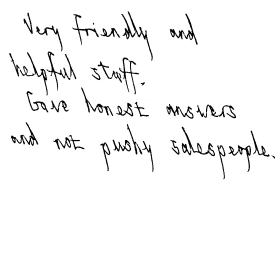 Very friendly and
helpful staff.
Gave honest answers
and not pushy salespeople.